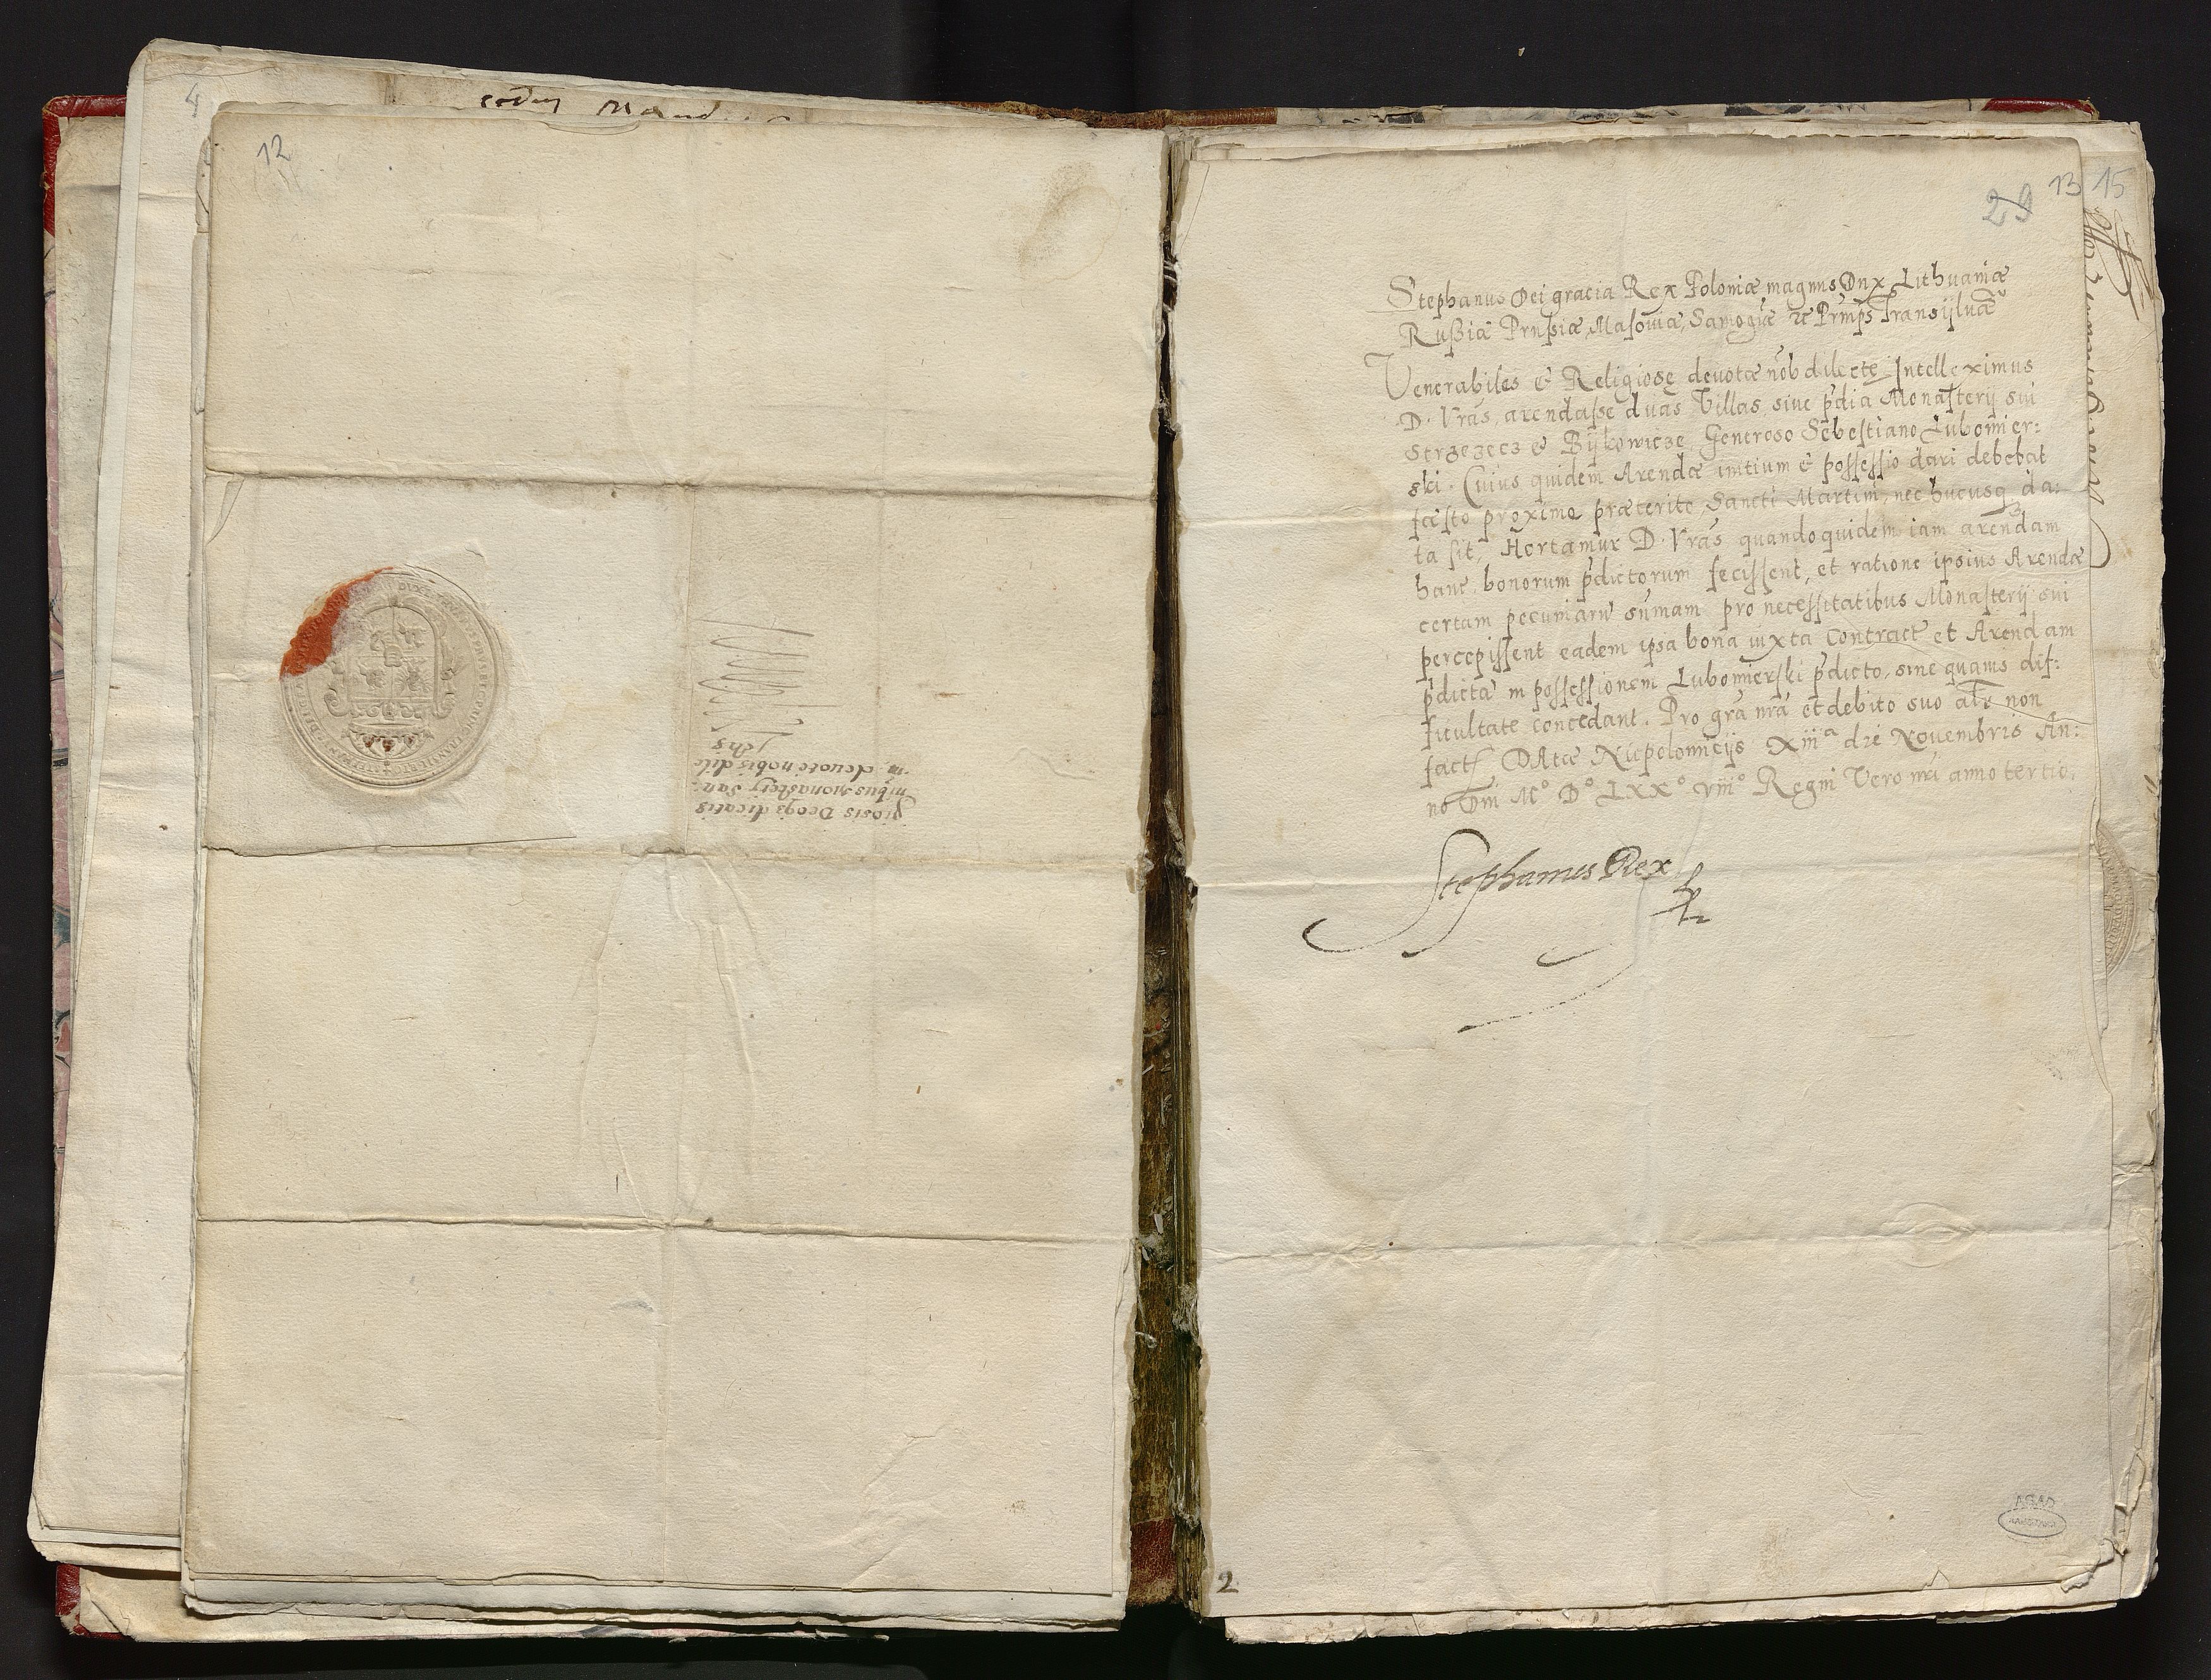 12
4
giosis Deoqȝ dicatis
nibus Monasterij San:
devote nobis dile
29
13
15
Stephanus Dei gracia Rex Poloniæ magnus Dux Lithuaniæ
Rußiæ Prußiæ, Masoviæ, Samogiæ ꝛc Prınps Transijluaẽ
Venerabiles & Religiosę devotæ nob dilecte. Intelleximus
D. Vrãs, arendasse duas Villas, sive p̃dia Monasterij sui
Strzezecz & Bÿkowicze Generoso Sebestiano Lubomier:
ski. Cuius quidem Arendæ initium & possessio dari debebat
fæsto proximo præterito Sancti Martini, nec hucusq da:
ta sit, Hortamur D. Vrãs quandoquidem iam arendam
hanc bonorum p̃dictorum fecissent, et ratione ipsius Arendæ
certam pecuniarũ sũmam pro necessitatibus Monasterij sui
percepissent eadem ipsa bona iuxta Contractũ et Arendam
p̃dictã in possessionem Lubomierski p̃dicto, sine quavis dif:
ficultate concedant. Pro grã nrã et debito suo alr̃ non
fact. Datæ Niepolomicijs XIIIª die Novembris An:
no Dñi Mº Dº LXXº VIIIº Regni Vero nri anno tertio.
Stephanus Rex
AGAD
WARSZAWA
2